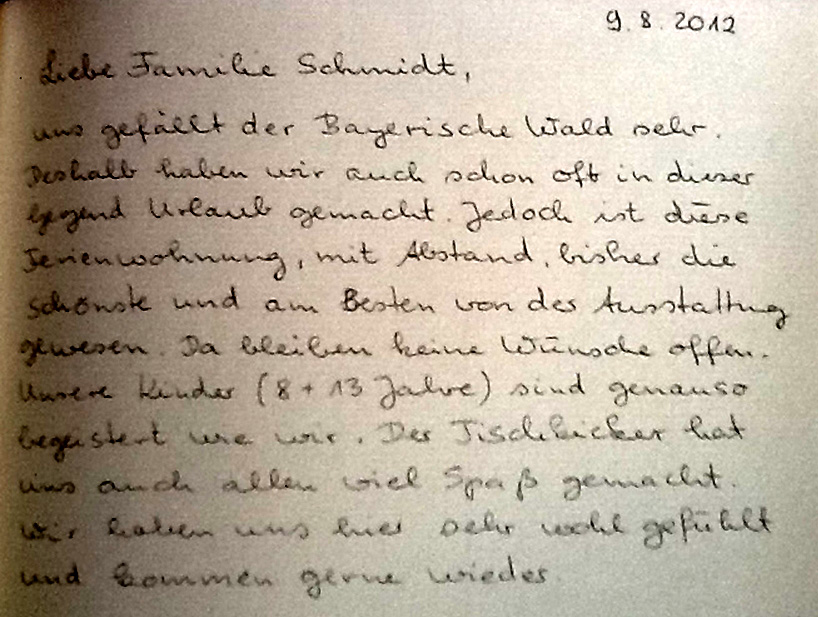 9.8.2012
Liebe Familie Schmidt,
uns gefällt der Bayerische Wald sehr.
Deshalb haben wir auch schon oft in dieser
Gegend Urlaub gemacht. Jedoch ist diese
Ferienwohnung, mit Abstand, bisher die
schönste und am Besten von der Ausstattung
gewesen. Da bleiben keine Wünsche offen.
Unsere Kinder (8 + 13 Jahre) sind genauso
begeistert wie wir. Der Tischkicker hat
uns auch allen viel Spaß gemacht.
Wir haben uns hier sehr wohl gefühlt
und kommen gerne wieder.